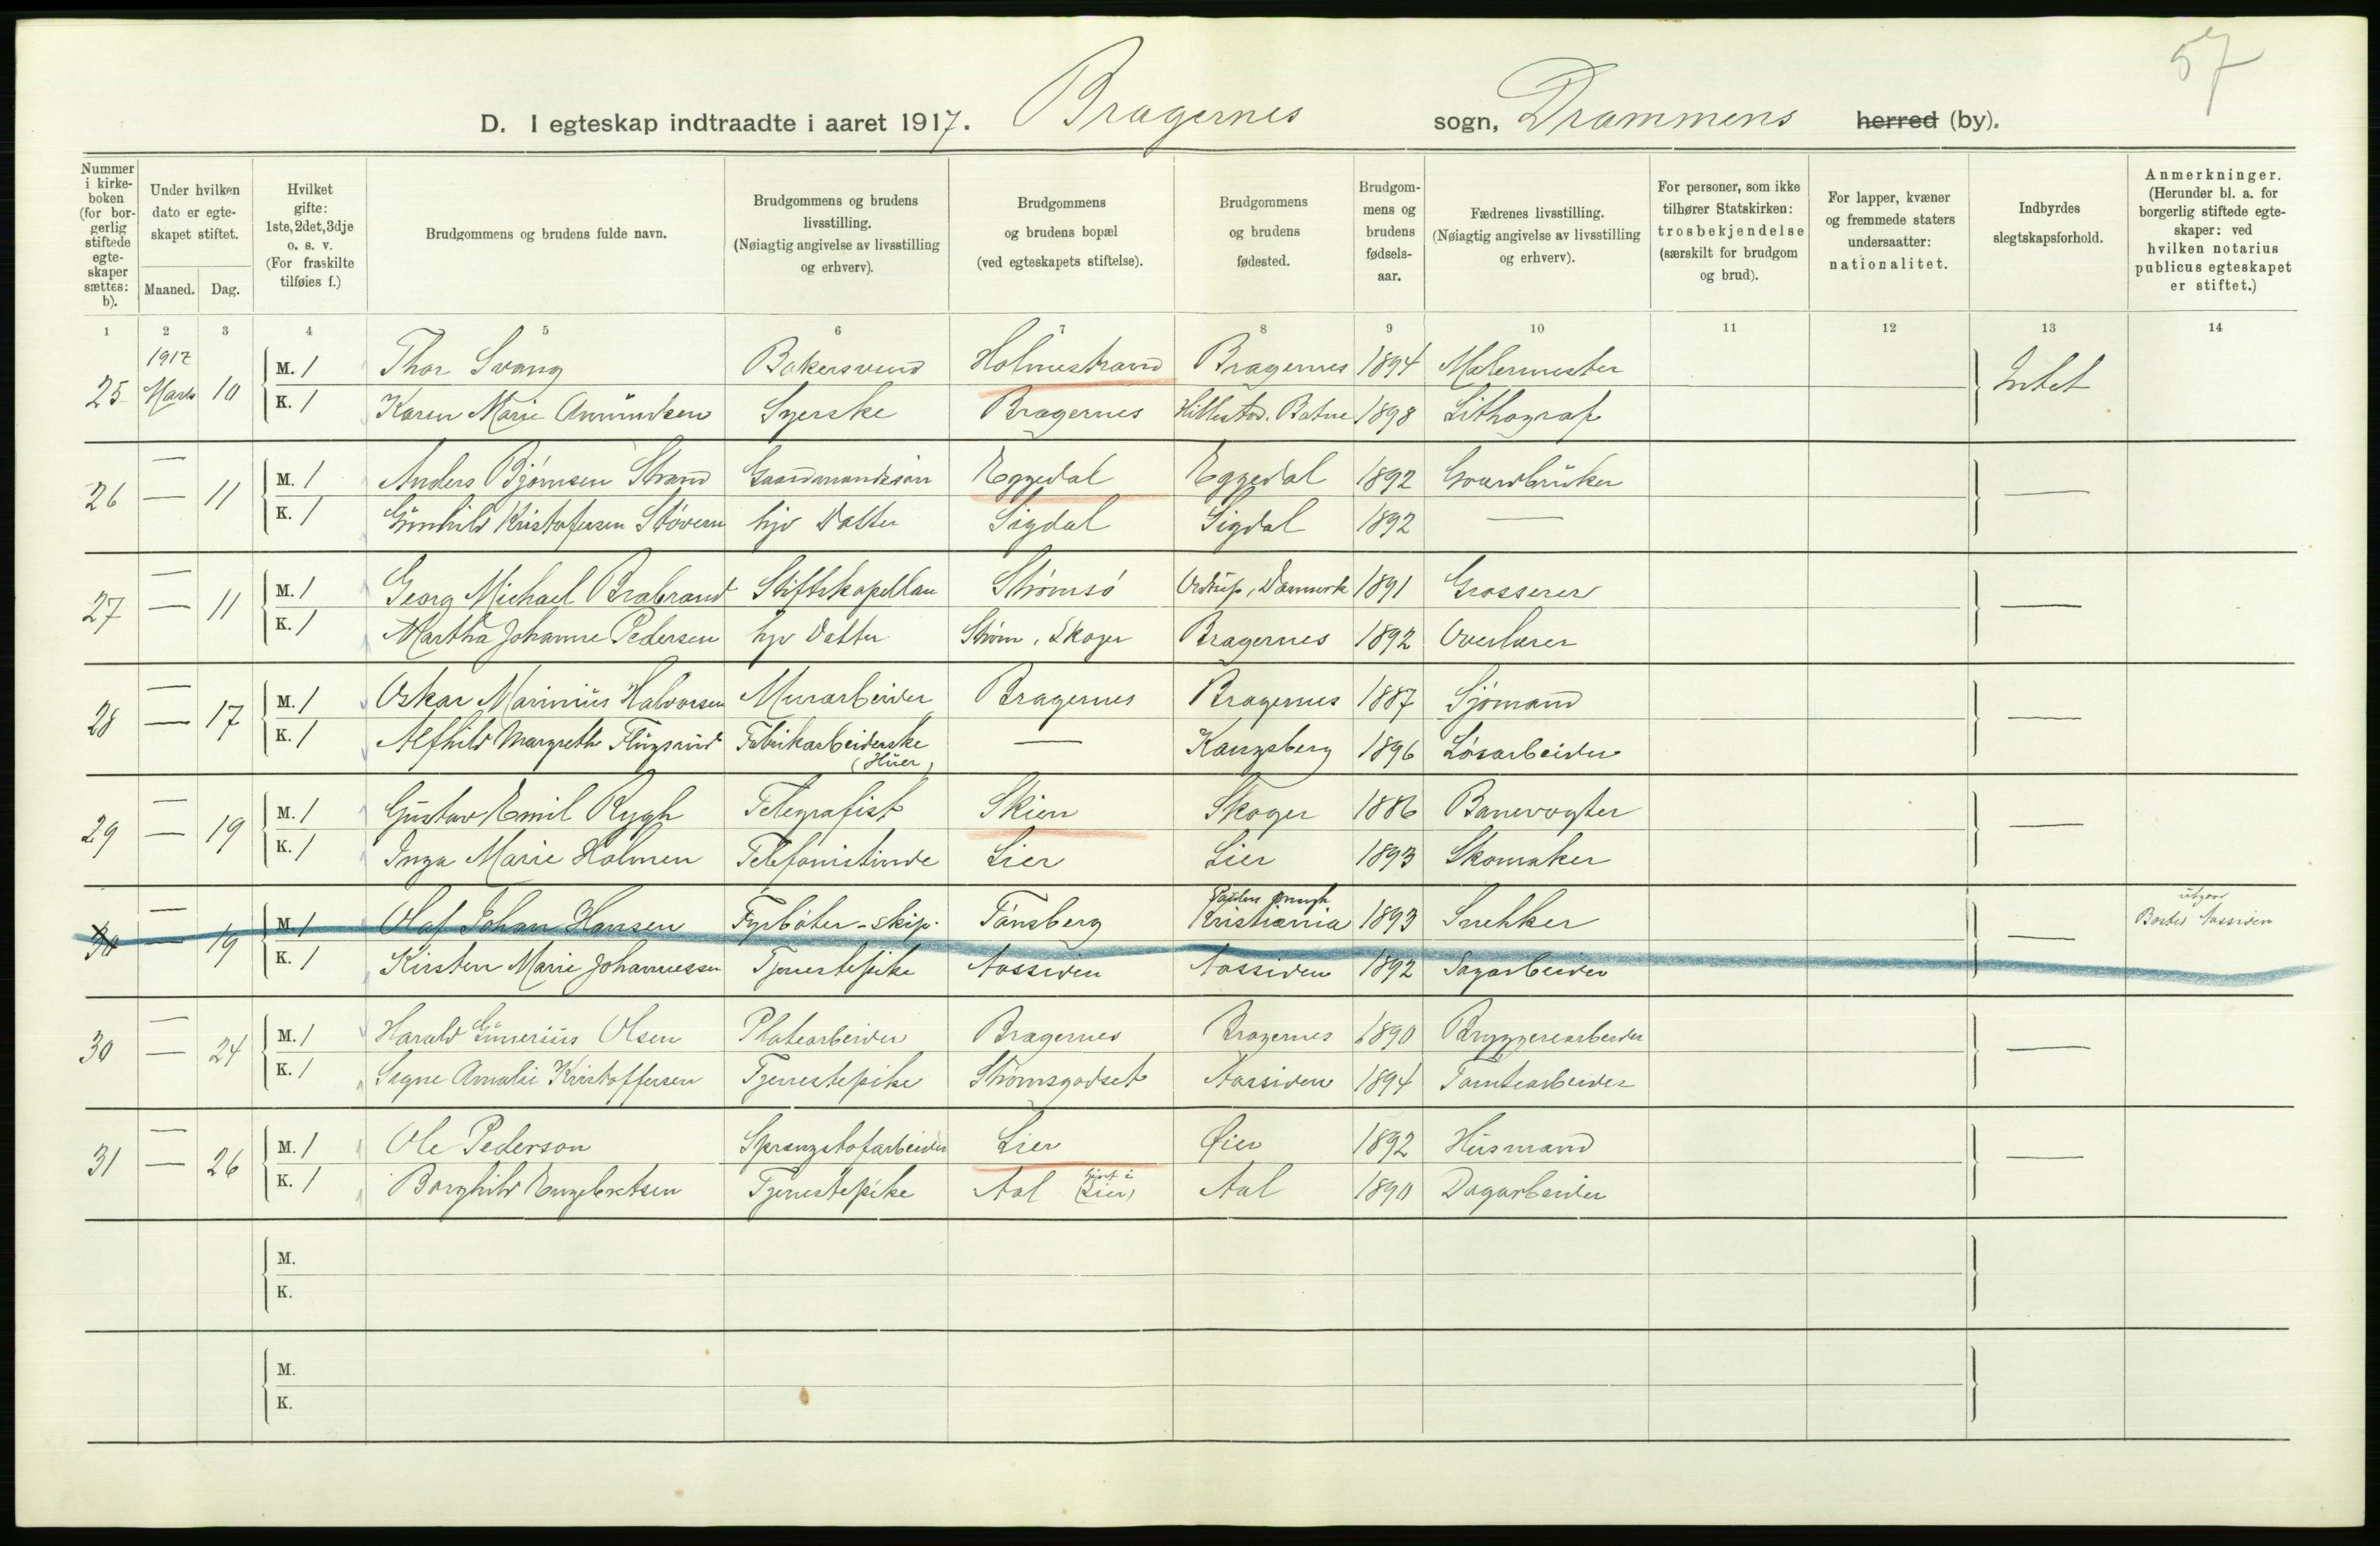 57
D. I egteskap indtraadte i aaret 1917. Bragernes sogn, Drammens herred (by).
Nummer i kirkeboken (for borgerlig stiftede egteskaper sættes: b).
Under hvilken dato er egteskapet stiftet.
Maaned. Dag.
Hvilket gifte: 1ste, 2det, 3dje o. s. v. (For fraskilte tilføies f.)
Brudgommens og brudens fulde navn.
Brudgommens og brudens livsstilling. (Nøiagtig angivelse av livsstilling og erhverv).
Brudgommens og brudens bopæl (ved egteskapets stiftelse).
Brudgommens og brudens fødested.
Brudgommens og brudens fødselsaar.
Fædrenes livsstilling. (Nøiagtig angivelse av livsstilling og erhverv).
For personer, som ikke tilhører Statskirken: trosbekjendelse (særskilt for brudgom og brud).
For lapper, kvæner og fremmede staters undersaatter: nationalitet.
Indbyrdes slegtskapsforhold.
Anmerkninger. (Herunder bl. a. for borgerlig stiftede egteskaper: ved hvilken notarius publicus egteskapet er stiftet.)
1 2 3 4 5 6 7 8 9 10 11 12 13 14
1917
25 Marts 10 M. 1 Thor Svang Bakersvend Holmestrand Bragernes 1894 Malermester Intet
K. 1 Karen Marie Amundsen Syerske Bragernes Hillestad. Botne 1898 Lithograf
26 — — 11 M. 1 Anders Bjørnsen Strand Gaardmandssøn Eggedal Eggedal 1892 Gaardbruker —
K. 1 Gunhild Kristofersen Støveren hjv Datter Sigdal Sigdal 1892 —
27 — — 11 M. 1 Georg Michael Brabrand Stiftskapellan Strømsø Ordrup, Danmark 1891 Grosserer —
K. 1 Martha Johanne Pedersen hjv Datter Strøm, Skoger Bragernes 1892 Overlærer
28 — — 17 M. 1 Oskar Marinius Halvorsen Murarbeider Bragernes Bragernes 1887 Sjømand —
K. 1 Alfhild Margrethe Flugsrud Fabrikarbeiderske — Kongsberg 1896 Løsarbeider
(Huer)
29 — — 19 M. 1 Gustav Emil Rygh Telegrafist Skien Skoger 1886 Banevogter —
K. 1 Inga Marie Holmen Telefonistinde Lier Lier 1893 Skomaker
Paulus utgaar
30 — — 19 M. 1 Olaf Johan Hansen Fyrbøter-skip. Tønsberg Kristiania 1893 Snekker — Aassiden
K. 1 Kirsten Marie Johannessen Tjenestepike Aassiden Aassiden 1892 Sagarbeider
30 — — 24 M. 1 Harald Gunerius Olsen Platearbeider Bragernes Bragernes 1890 Bryggerearbeider —
K. 1 Signe Amalie Kristoffersen Tjenestepike Strømsgodset Aassiden 1894 Tomtearbeider
31 — — 26 M. 1 Ole Pederson Sprængstofarbeider Lier Øier 1892 Husmand —
K. 1 Borghild Engebretsen Tjenestepike Aal (hjørt i Lier) Aal 1890 Dagarbeider
M.
K.
M.
K.